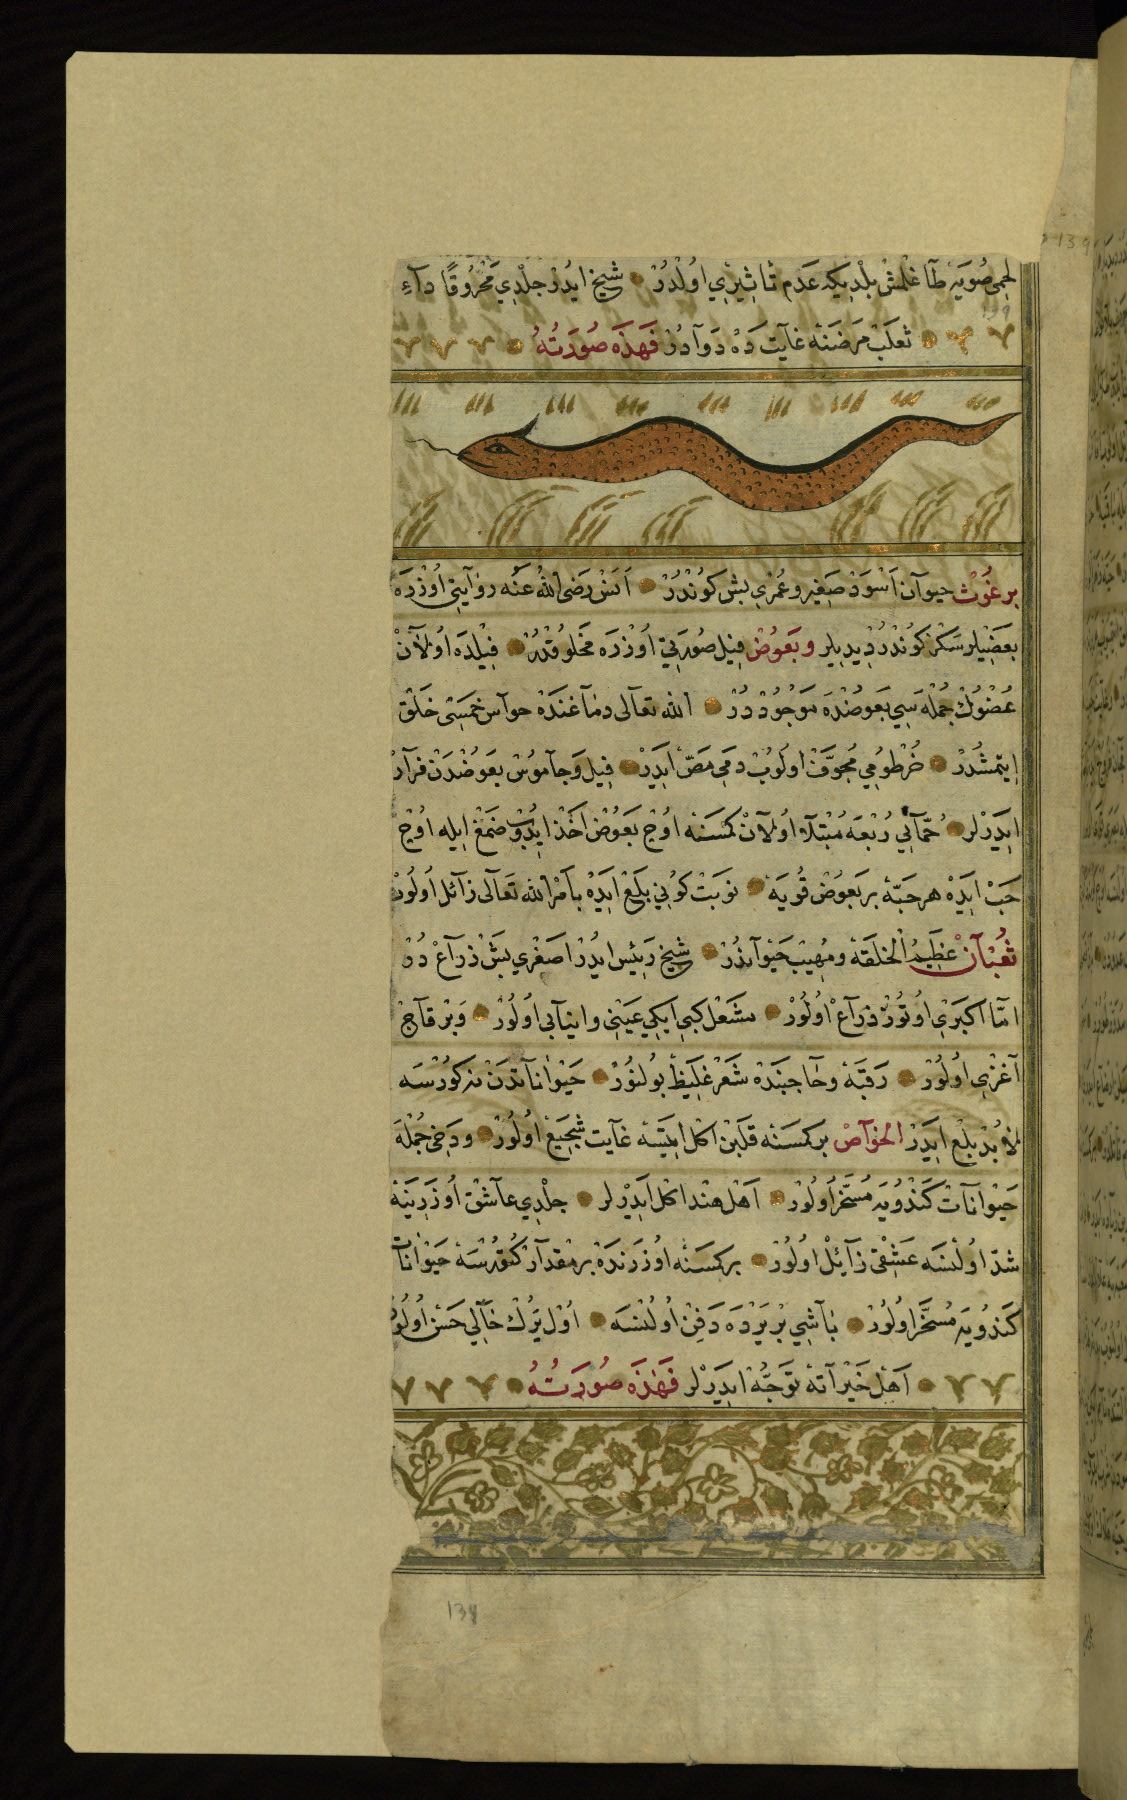 لحمی صویه طآغلمش بلدیکه عدم تأثیری اولدر شیخ ایدر جلدی محروقا دآء
ثعلب مرضنه غایت ده دوآدر فهذه صورته
برغوث حیوآن اسود صغیر و عمری بش کوندر انس رضی الله عنه روایتی اوزره
بعضیلر سکز کوندر دیدیلر و بعوض فیل صورتی اوزره مخلوقدر فیلده اولآن
عضوک جمله سی بعوضده موجوددر الله تعآلی دمآغنده حوآس خمستی خلق
ایتمشدر خرطومی مجوف اولوب دمی مص ایدر فیل و جآموش بعوضدن فرآر
ایدرلر حمآئی ربعه مبتلا اولآن کمسنه اوچ بعوض اخذ ایدوب صمغ ایله اوچ
حب ایده هر حبه بر بعوض قویه نوبت کونی بلع ایده بامر الله تعآلی زآئل اولور
ثعبآن عظیم الخلقه و مهیب حیوآندر شیخ رئیس ایدر اصغری بش ذرآع در
امّا اکبری اوتوز ذرآع اولور مشعل کبی ایکی عینی و انیآبی اولور و بر قآچ
آغزی اولور رقبه و حآجبنده شعر غلیظ بولنور حیوانآتدن نه کورسه
لا بد بلع ایدر الخوآص بر کسنه قلبن اکل ایتسه غایت شجیع اولور و دخی جمله
حیوانآت کندویه مسخر اولور اهل هند اکل ایدرلر جلدی عآشق اوزرینه
شد اولنسه عشقی زآئل اولور بر کسنه اوزرنده بر مقدآر کتورسه حیوانآت
کندویه مسخر اولور بآشی بر یرده دفن اولنسه اول یرک حآلی حسن اولور
اهل خیرآته توجه ایدرلر فهذه صورته
139
139
134